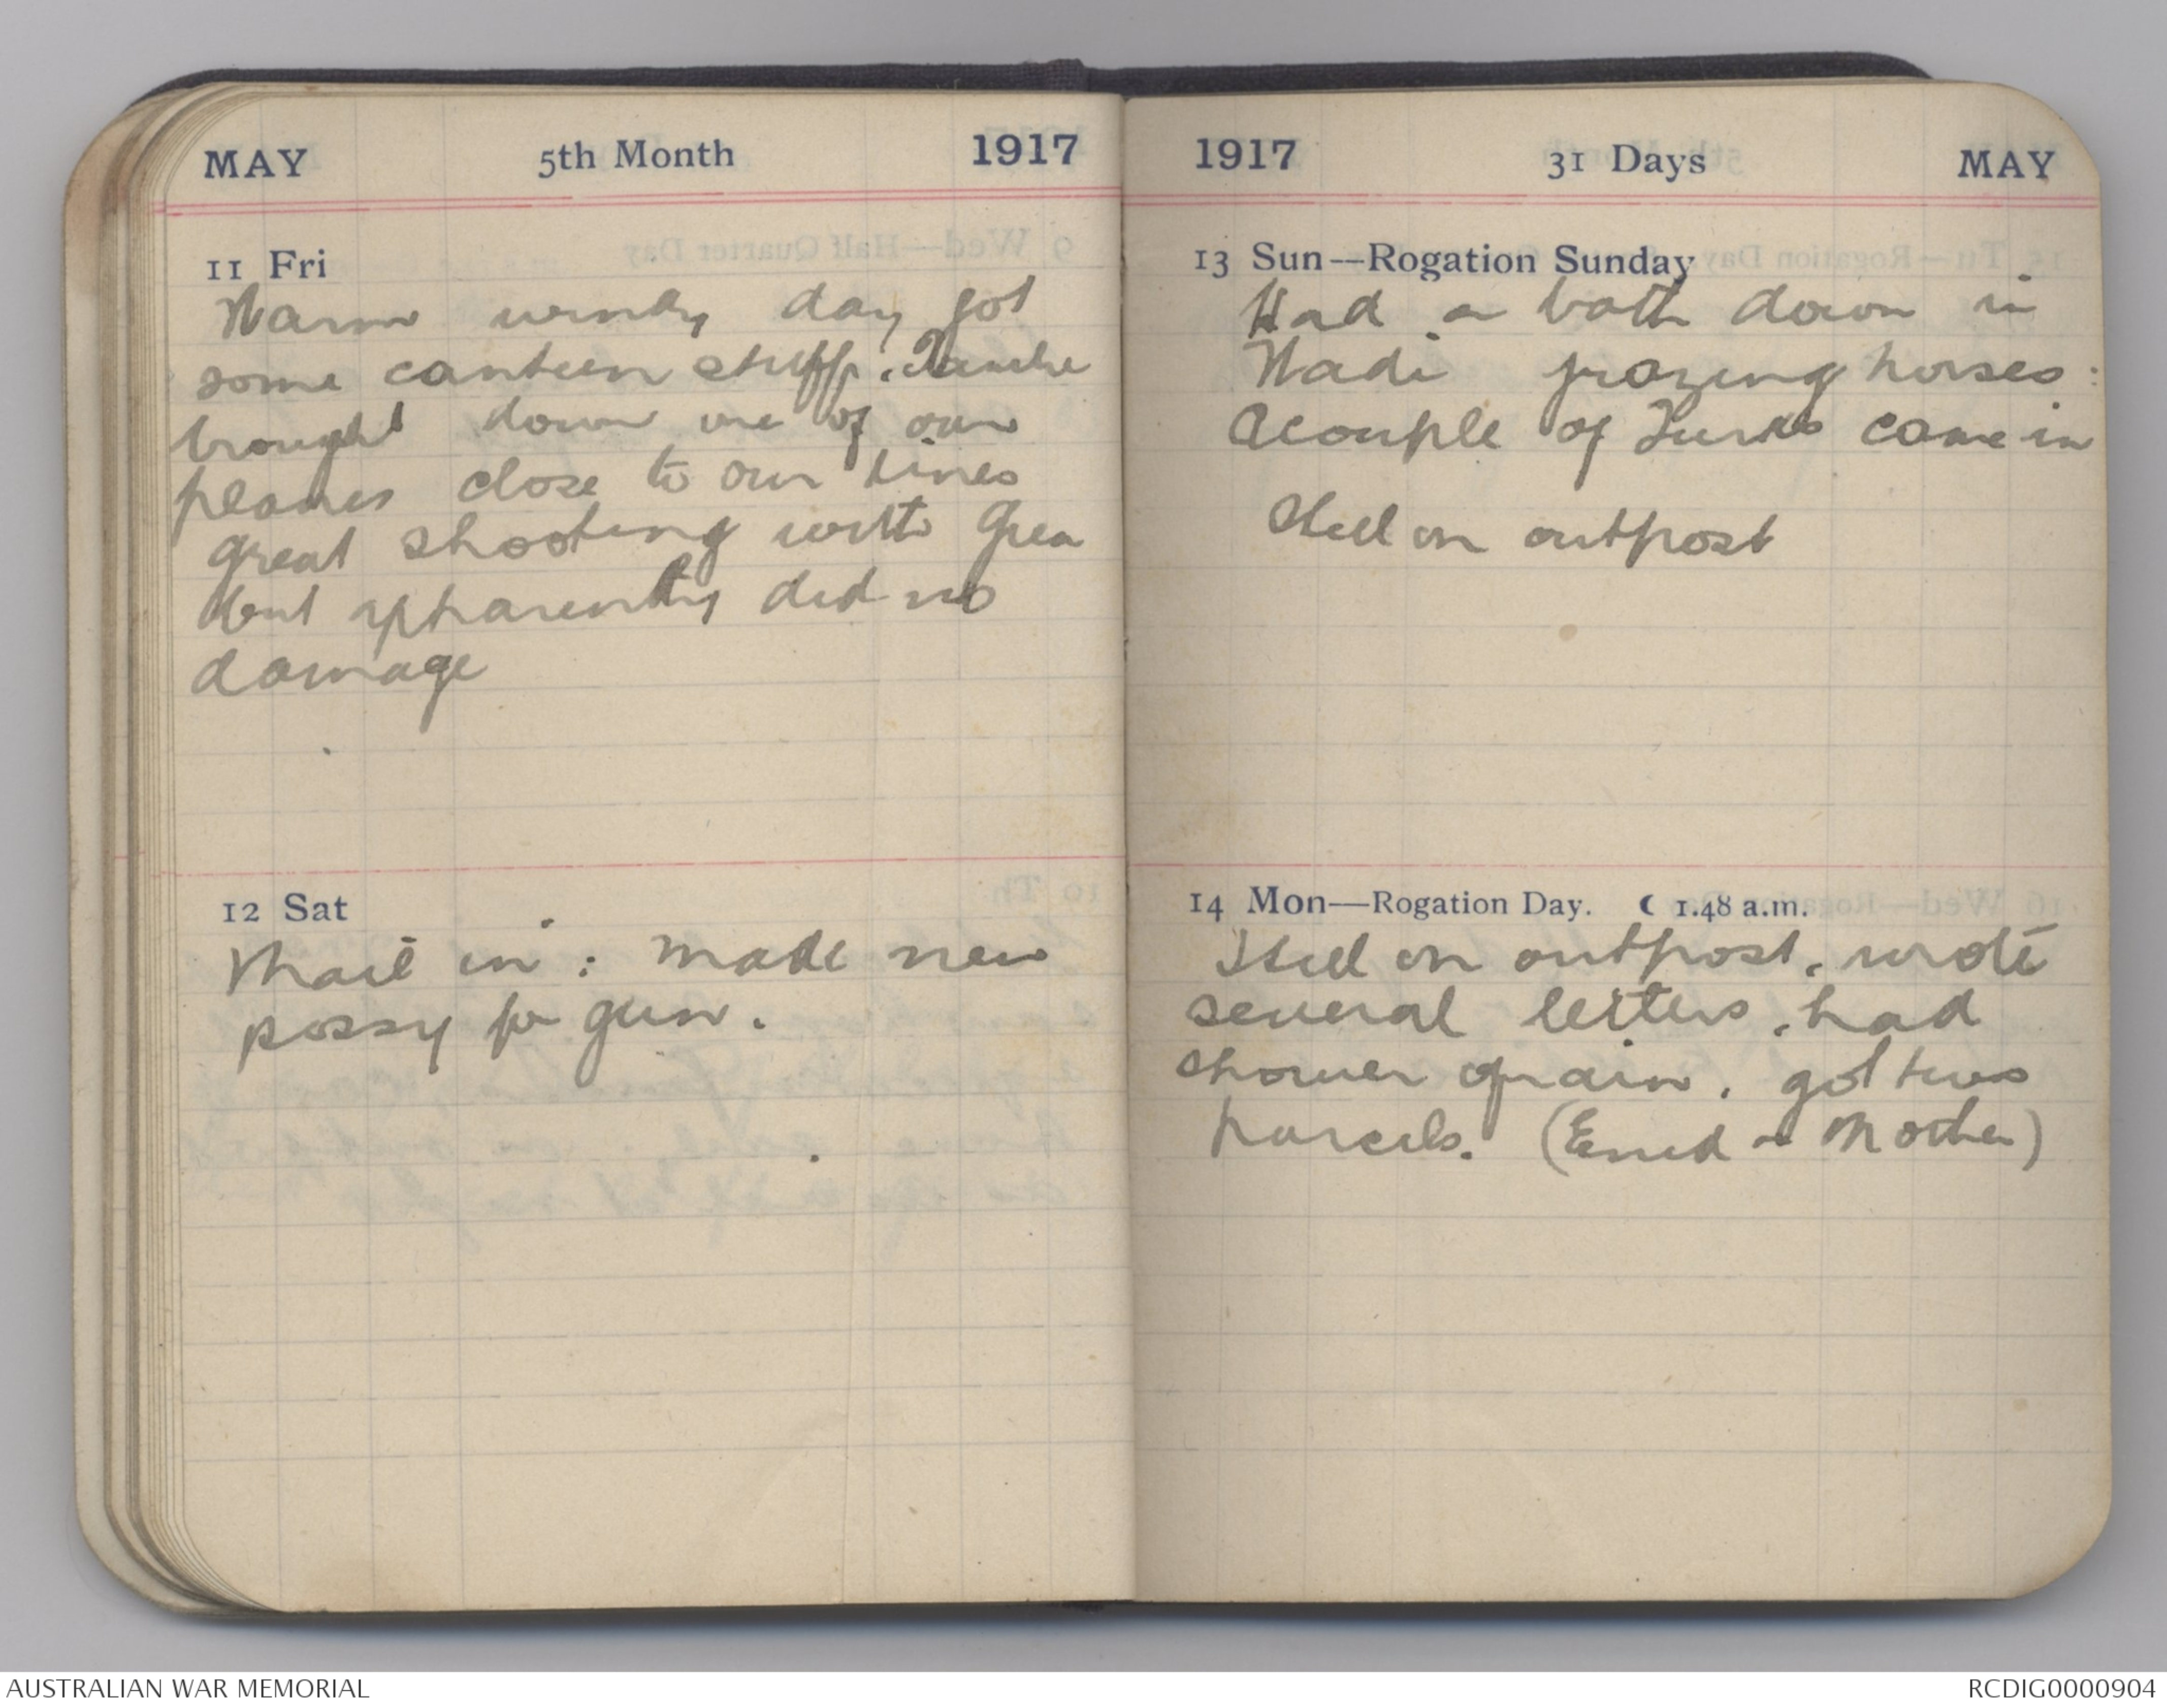 MAY 5th Month 1917
11 Fri
Warm windy day got
some canteen stuff. Taube
brought down one of our
planes close to our lines
great shooting with Guns
but apparently did no
damage
12 Sat
Mail in : made new
possy for gun.
1917 31 Days MAY
13 Sun—Rogation Sunday
Had a bath down in
Wadi grazing horses :
A couple of Turks came in
Still on outpost
14 Mon—Rogation Day. ☾ 1.48 a.m.
Still on outpost, wrote
several letters, had
shower of rain. got two
parcels. (Enid & Mother)
AUSTRALIAN WAR MEMORIAL
RCDIG0000904